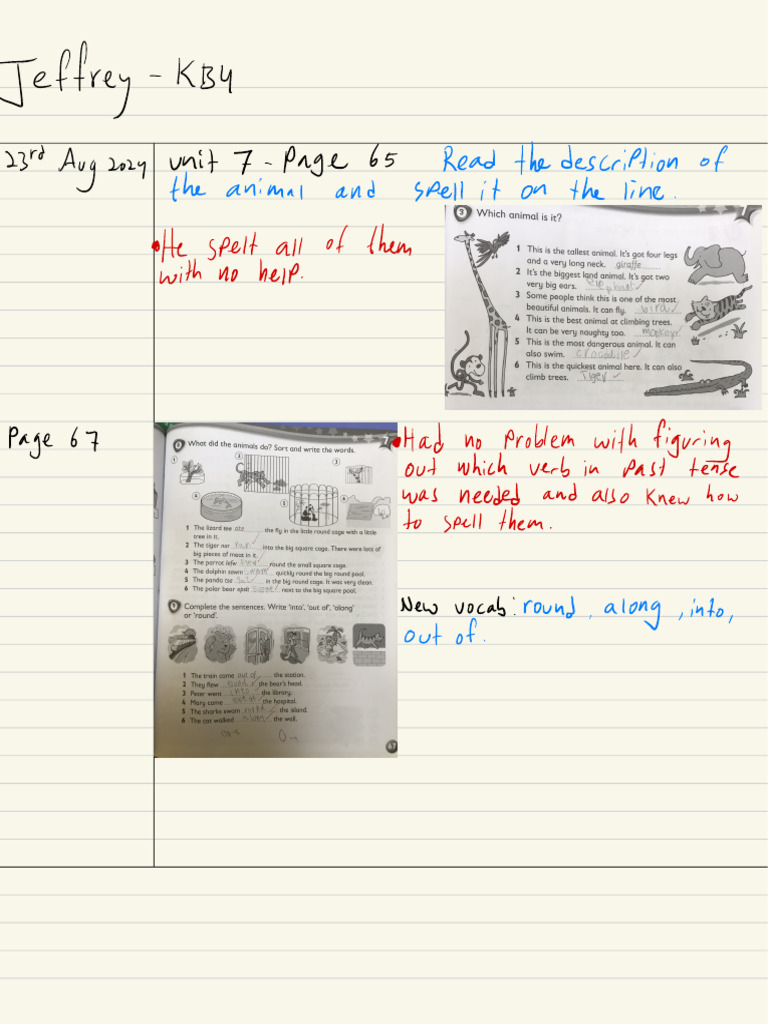 Jeffrey - KB4
23rd Aug 2024
unit 7 - Page 65 Read the description of
the animal and spell it on the line.
• He spelt all of them
with no help.
3 Which animal is it?
1 This is the tallest animal. It's got four legs
and a very long neck. giraffe
2 It's the biggest land animal. It's got two
very big ears. elephant
3 Some people think this is one of the most
beautiful animals. It can fly. bird
4 This is the best animal at climbing trees.
It can be very naughty too. monkey
5 This is the most dangerous animal. It can
also swim. crocodile
6 This is the quickest animal here. It can also
climb trees. Tiger
Page 67
What did the animals do? Sort and write the words.
1 The lizard tee ate the fly in the little round cage with a little
tree in it.
2 The tiger nar ran into the big square cage. There were lots of
big pieces of meat in it.
3 The parrot lefw flew round the small square cage.
4 The dolphin sawm swam quickly round the big round pool.
5 The panda tas sat in the big round cage. It was very clean.
6 The polar bear next to the big square pool.
Complete the sentences. Write 'into', 'out of', 'along'
or 'round'.
1 The train came out of the station.
2 They flew round the bear's head.
3 Peter went into the library.
4 Mary came out of the hospital.
5 The sharks swam round the island.
6 The cat walked along the wall.
67
• Had no problem with figuring
out which verb in past tense
was needed and also knew how
to spell them.
New vocab: round, along, into,
out of.